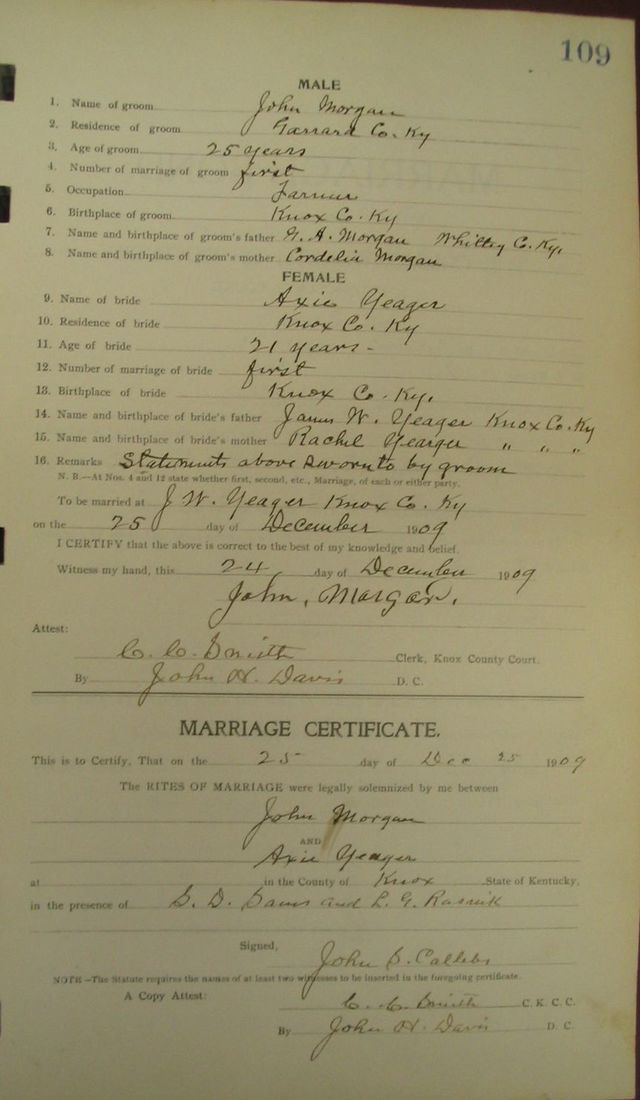 109
MALE
1. Name of groom John Morgan
2. Residence of groom Garrard Co. Ky
3. Age of groom 25 years
4. Number of marriage of groom first
5. Occupation Farmer
6. Birthplace of groom Knox Co. Ky
7. Name and birthplace of groom's father G. A. Morgan Whitley Co. Ky.
8. Name and birthplace of groom's mother Cordelia Morgan
FEMALE
9. Name of bride Axie Yeager
10. Residence of bride Knox Co. Ky
11. Age of bride 21 years -
12. Number of marriage of bride first
13. Birthplace of bride Knox Co. Ky.
14. Name and birthplace of bride's father James W. Yeager Knox Co. Ky
15. Name and birthplace of bride's mother Rachel Yearger " " "
16. Remarks Statements above sworn to by groom
N. B.—At Nos. 4 and 12 state whether first, second, etc., Marriage, of each or either party.
To be married at J. W. Yeager Knox Co. Ky
on the 25 day of December 1909
I CERTIFY that the above is correct to the best of my knowledge and belief.
Witness my hand, this 24 day of December 1909
John, Morgan.
Attest:
C. C. Smith Clerk, Knox County Court.
By John H. Davis D. C.
MARRIAGE CERTIFICATE.
This is to Certify, That on the 25 day of Dec 25 1909
The RITES OF MARRIAGE were legally solemnized by me between
John Morgan
AND
Axie Yeager
at in the County of Knox State of Kentucky,
in the presence of D. and L. G.
Signed, John S. Callebs
NOTE—The Statute requires the names of at least two witnesses to be inserted in the foregoing certificate.
A Copy Attest: C. C. Smith C. K. C. C.
By John H. Davis D. C.